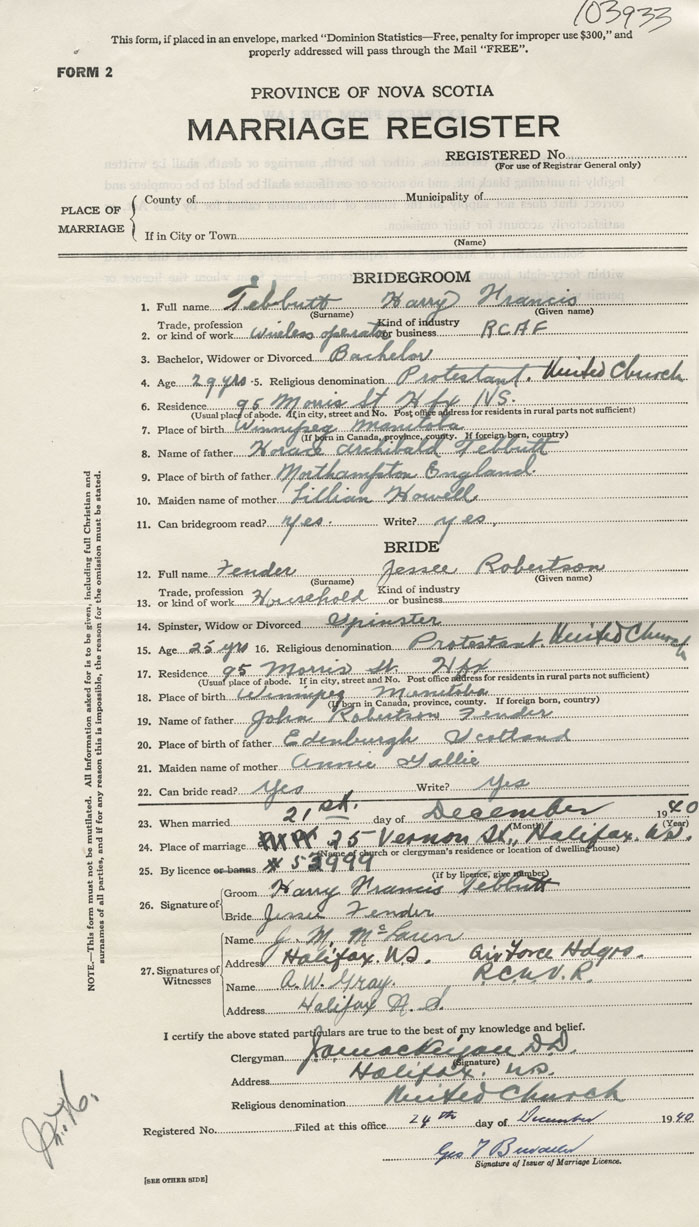 103933
This form, if placed in an envelope, marked "Dominion Statistics—Free, penalty for improper use $300," and
properly addressed will pass through the Mail "FREE".
FORM 2
PROVINCE OF NOVA SCOTIA
MARRIAGE REGISTER
REGISTERED No.
(For use of Registrar General only)
PLACE OF MARRIAGE
County of Municipality of
If in City or Town
(Name)
BRIDEGROOM
1. Full name Tebbutt Harry Francis
(Surname) (Given name)
2. Trade, profession or kind of work Wireless operator Kind of industry or business R C A F
3. Bachelor, Widower or Divorced Bachelor
4. Age 29 yrs 5. Religious denomination Protestant. United Church
6. Residence 95 Morris St Hfx N.S.
(Usual place of abode. If in city, street and No. Post office address for residents in rural parts not sufficient)
7. Place of birth Winnipeg Manitoba
(If born in Canada, province, county. If foreign born, country)
8. Name of father Horace Archibald Tebbutt
9. Place of birth of father Northampton England.
10. Maiden name of mother Lillian Howell
11. Can bridegroom read? yes. Write? yes.
BRIDE
12. Full name Fender Jessee Robertson
(Surname) (Given name)
13. Trade, profession or kind of work Household Kind of industry or business
14. Spinster, Widow or Divorced Spinster
15. Age 25 yrs 16. Religious denomination Protestant. United Church
17. Residence 95 Morris St. Hfx
(Usual place of abode. If in city, street and No. Post office address for residents in rural parts not sufficient)
18. Place of birth Winnipeg Manitoba
(If born in Canada, province, county. If foreign born, country)
19. Name of father John Robertson Fender
20. Place of birth of father Edinburgh Scotland
21. Maiden name of mother Annie Gallie
22. Can bride read? Yes Write? Yes
23. When married 21st. day of December 1940
(Month) (Year)
24. Place of marriage 25 Vernon St., Halifax. N.S.
(Name of church or clergyman's residence or location of dwelling house)
25. By licence or banns # 53999
(if by licence, give number)
26. Signature of
Groom Harry Francis Tebbutt
Bride Jessee Fender
27. Signatures of Witnesses
Name J. M. McLaren
Address Halifax. N.S. Air Force Hdqrs.
Name A. W. Gray. R.C.N.V.R.
Address Halifax N. S.
I certify the above stated particulars are true to the best of my knowledge and belief.
Clergyman D.D.
(Signature)
Address Halifax. N.S.
Religious denomination United Church
Registered No. Filed at this office 24th day of December 1940
Geo
Signature of Issuer of Marriage Licence.
[SEE OTHER SIDE]
NOTE.—This form must not be mutilated. All information asked for is to be given, including full Christian and
surnames of all parties, and if for any reason this is impossible, the reason for the omission must be stated.